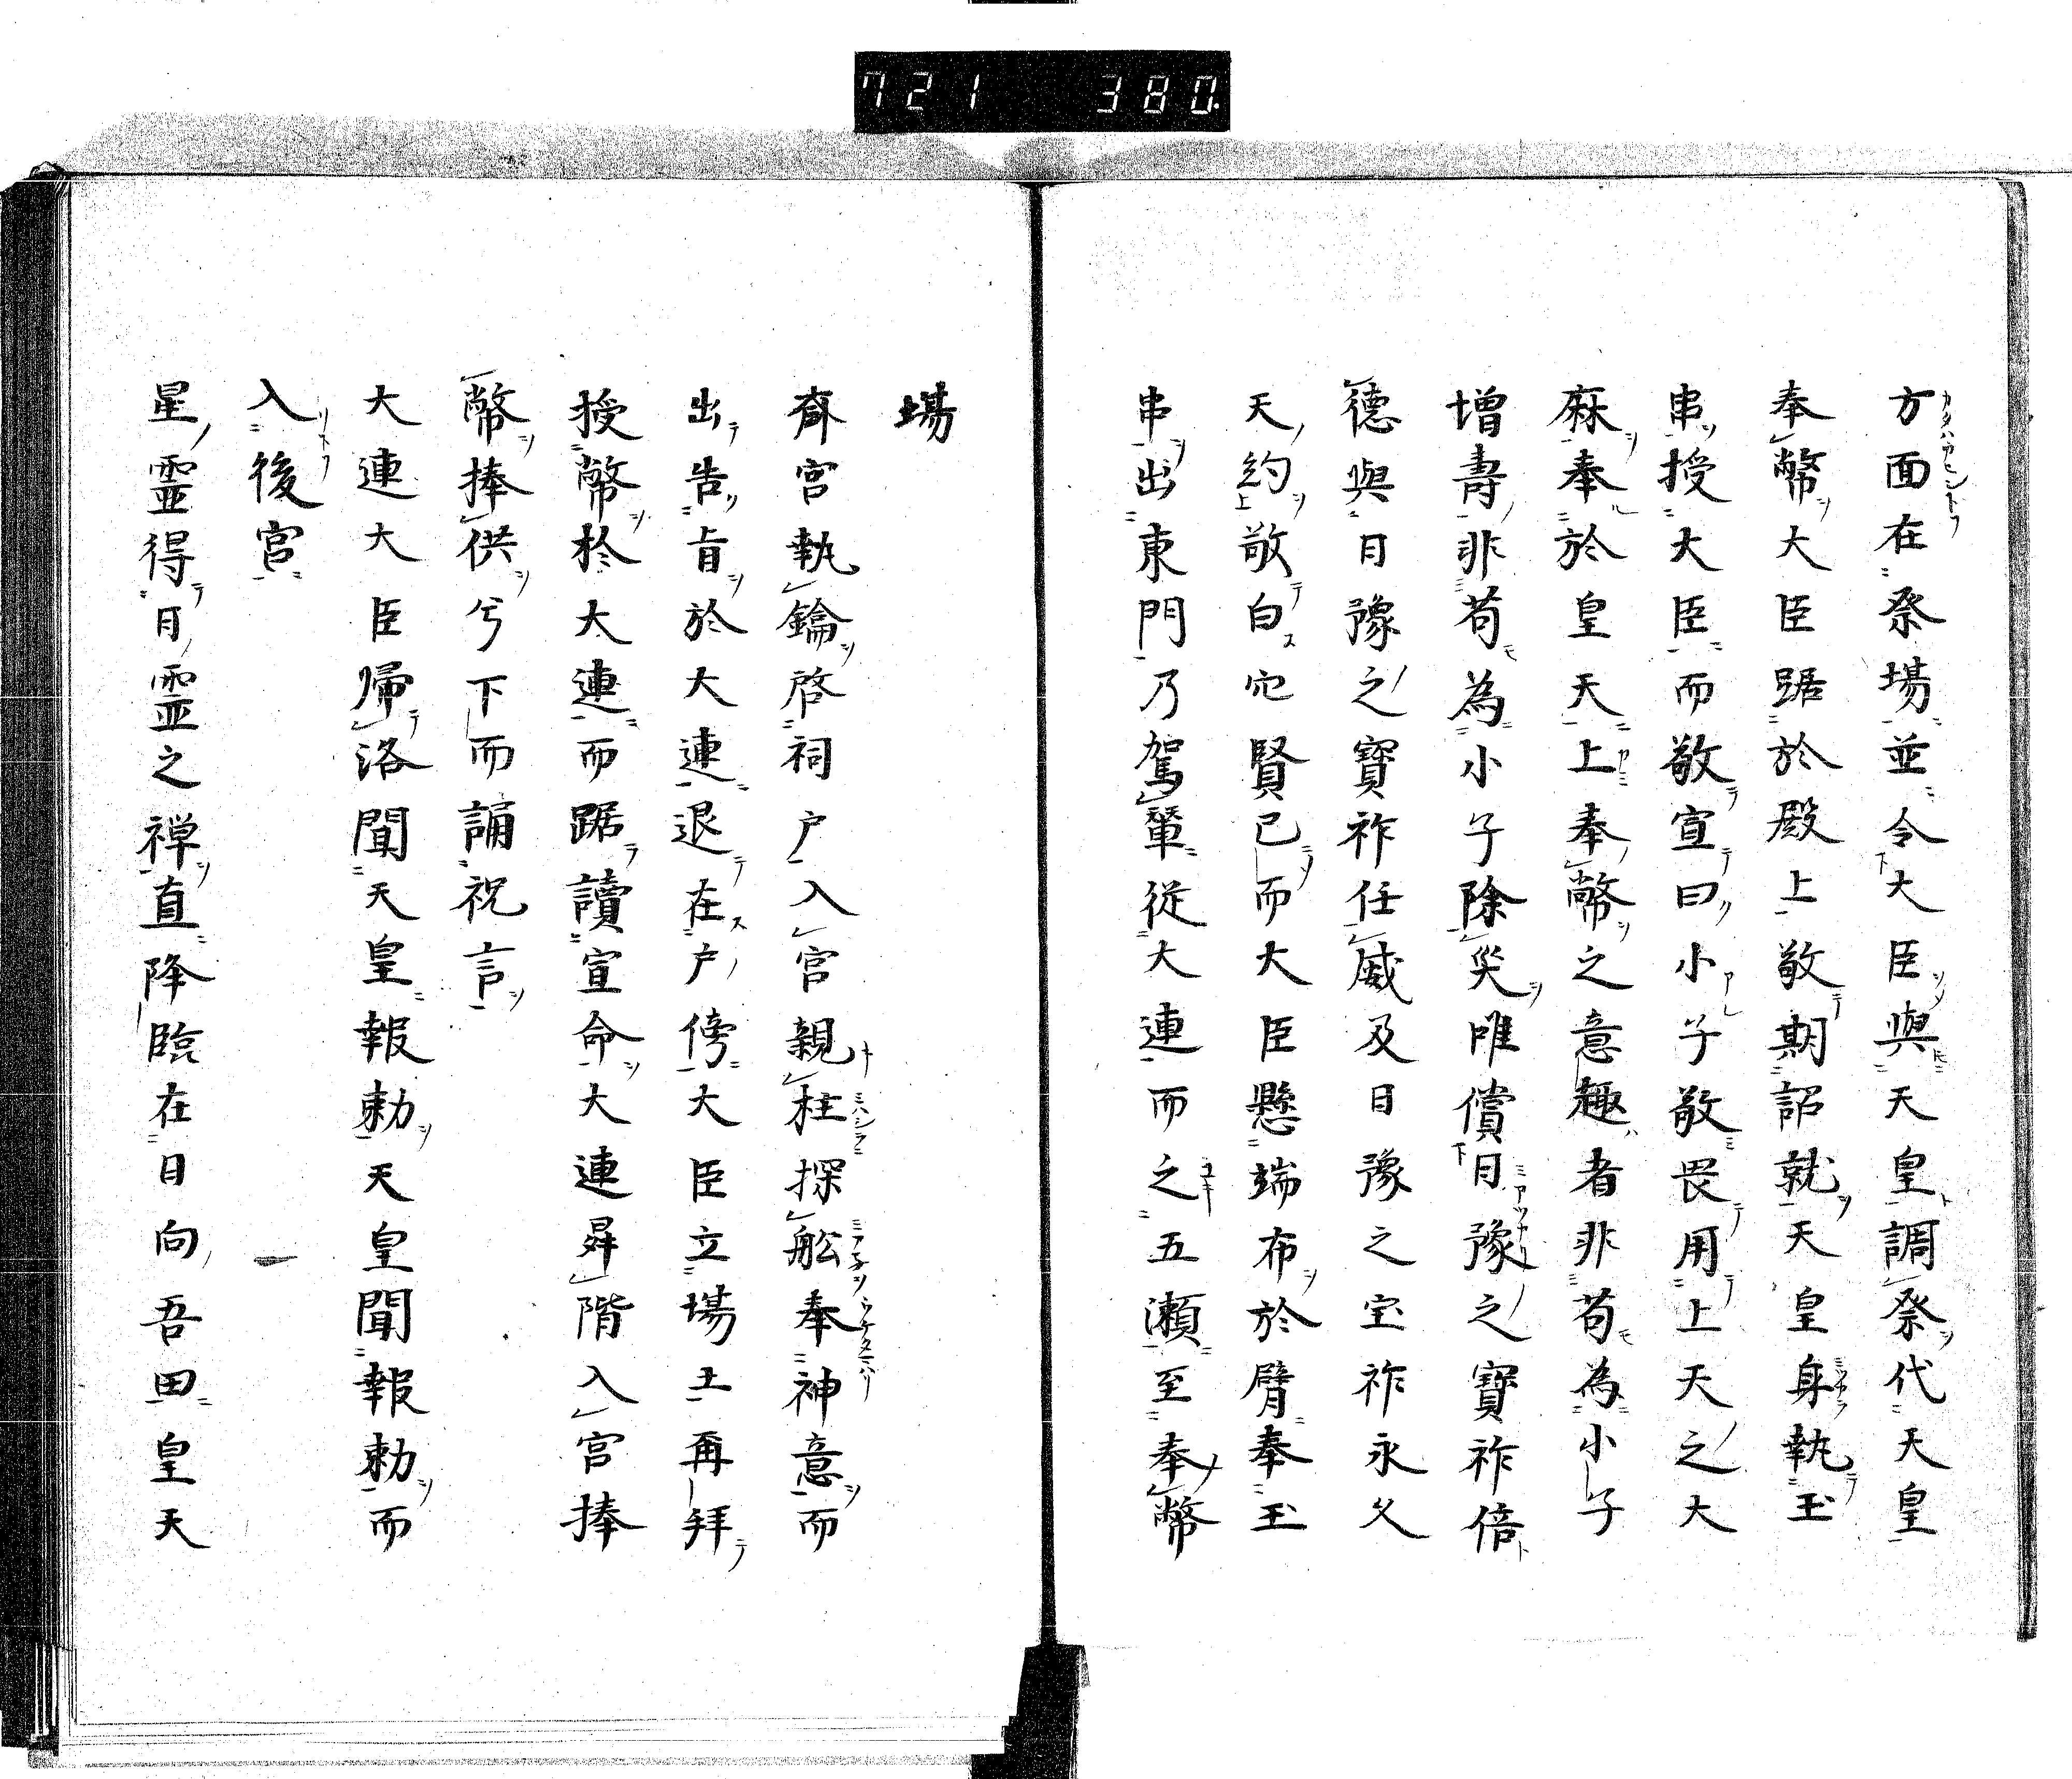 721 380
方面在祭場並令大臣與天皇調祭代天皇
奉幣大臣踞於殿上敬期詔就天皇身執玉
串授大臣而敬宣曰小子敬畏用上天之大
麻奉於皇天上奉幣之意趣者非苟為小子
增壽非苟為小子除災唯償日豫之寶祚倍
德與日豫之寶祚任威及日豫之宝祚永久
天約敬白究賢已而大臣懸端布於臂奉玉
串出東門乃駕輦從大連而之五瀨至奉幣
場
齊宮執鑰啓祠戶入宮親柱探舩奉神意而
出告旨於大連退在戶傍大臣立場土再拜
授幣於大連而踞讀宣命大連昇階入宮捧
幣捧供兮下而誦祝言
大連大臣歸洛聞天皇報勅天皇聞報勅而
入後宮
星靈得日靈之禅直降臨在日向吾田皇天